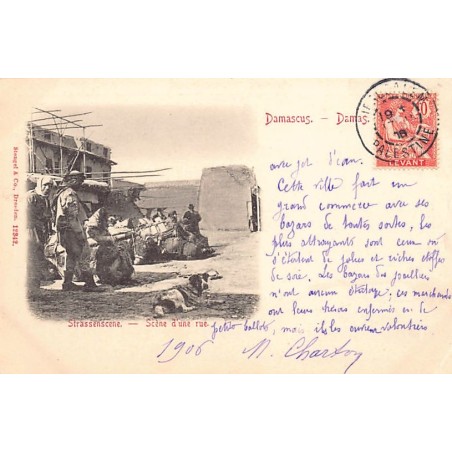 Damascus. — Damas.
JERUSALEM
PALESTINE
10
LEVANT
avec jet d'eau.
Cette ville fait un
grand commerce avec ses
bazars de toutes sortes, les
plus attrayants sont ceux où
s'étalent de jolies et riches étoffes
de soie. Les bazars des joailliers
n'ont aucun étalage; ces marchands
ont leurs trésors enfermés en de
petits ballots, mais ils les ouvrent volontiers
Strassenscene. — Scène d'une rue
1906 M. Charton
Stengel & Co., Dresden. 12912.